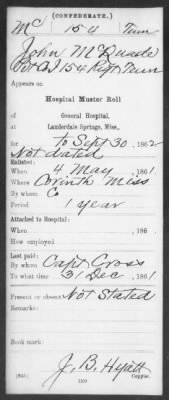 (CONFEDERATE.)
Mc 154 Tenn
John McQuade
Pvt Co I 154 Regt Tenn
Appears on
Hospital Muster Roll
of General Hospital,
at Lauderdale Springs, Miss.,
for To Sept 30, 1862
Not dated
Enlisted:
When 4 May, 1861
Where Corinth Miss
By whom Co
Period 1 year
Attached to Hospital:
When , 186 .
How employed
Last paid:
By whom Capt Cross
To what time 31 Dec, 1861
Present or absent Not Stated
Remarks:
Book mark:
J. B. Hyatt
Copyist.